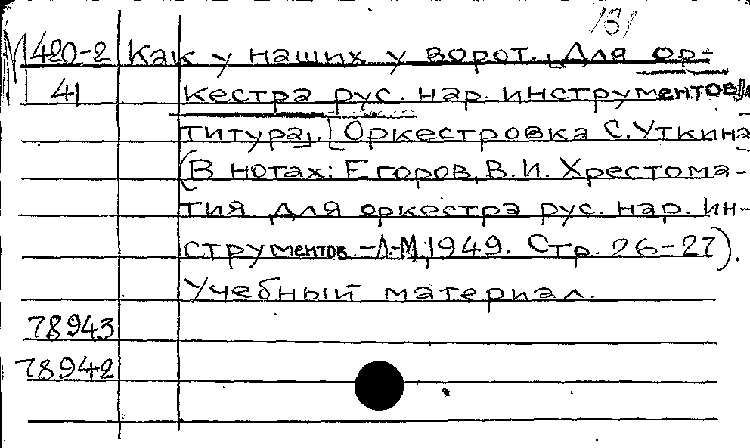 131
М 420-2 Как у наших у ворот. [Для ор-
41 кестра рус. нар. инструментов
титура]. [Оркестровка С. Уткина
(В нотах: Егоров, В. И. Хрестома-
тия для оркестра рус. нар. ин-
струментов. -Л-М, 1949. Стр. 26-27).
Учебный материал.
78943
78942